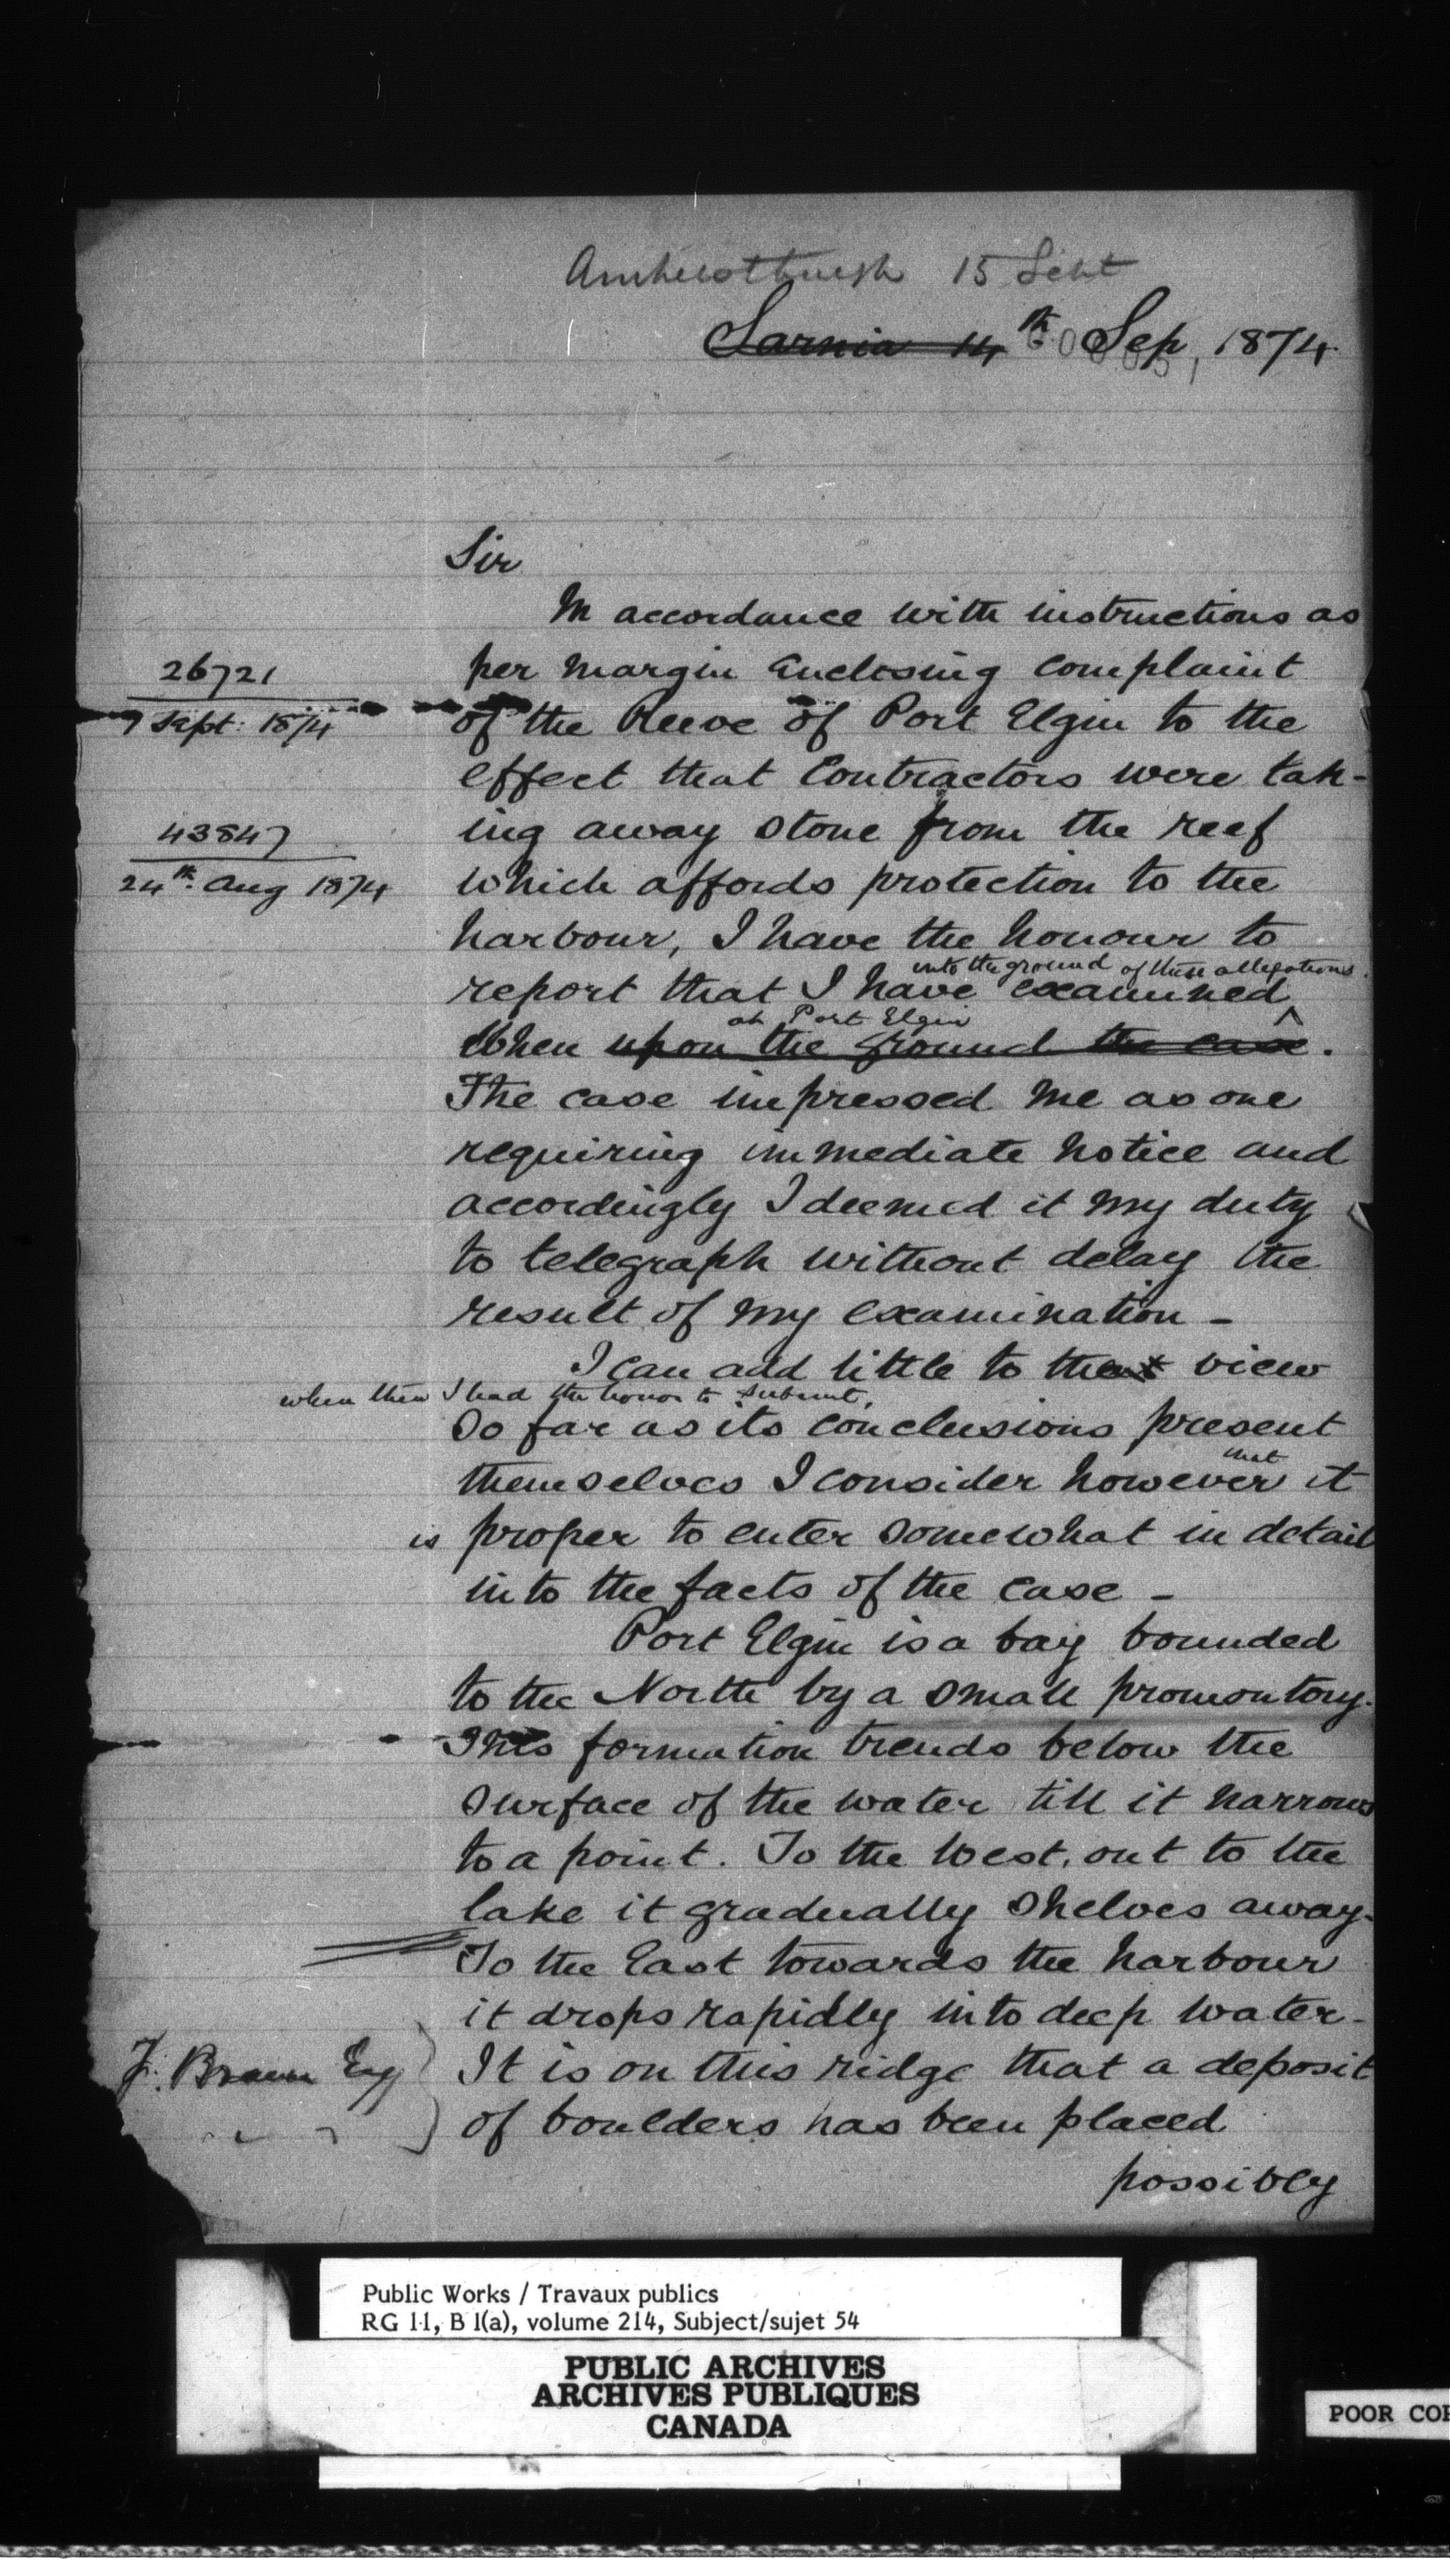 Amherstburgh 15 Sept
Sarnia 14th Sep, 1874.
Sir
In accordance with instructions as
26721
per margin enclosing complaint
7 Sept: 1874
of the Reeve of Port Elgin to the
effect that Contractors were tak-
43847
ing away stone from the reef
24th. Aug 1874
which affords protection to the
harbour, I have the honour to
into the ground of these allegations.
report that I have examined
at Port Elgin
when upon the ground the case.
The case impressed me as one
requiring immediate notice and
accordingly I deemed it my duty
to telegraph without delay the
result of my examination -
I can add little to the view
when then I had the honor to submit,
so far as its conclusions present
that
themselves I consider however it
is proper to enter somewhat in detail
into the facts of the case -
Port Elgin is a bay bounded
to the North by a small promontory.
This formation trends below the
surface of the water till it narrows
to a point. To the West, out to the
lake it gradually shelves away.
To the East towards the harbour
it drops rapidly into deep water.
F. Braun Esq
It is on this ridge that a deposit
of boulders has been placed
possibly
Public Works / Travaux publics
RG 11, B 1(a), volume 214, Subject/sujet 54
PUBLIC ARCHIVES
ARCHIVES PUBLIQUES
CANADA
POOR COP